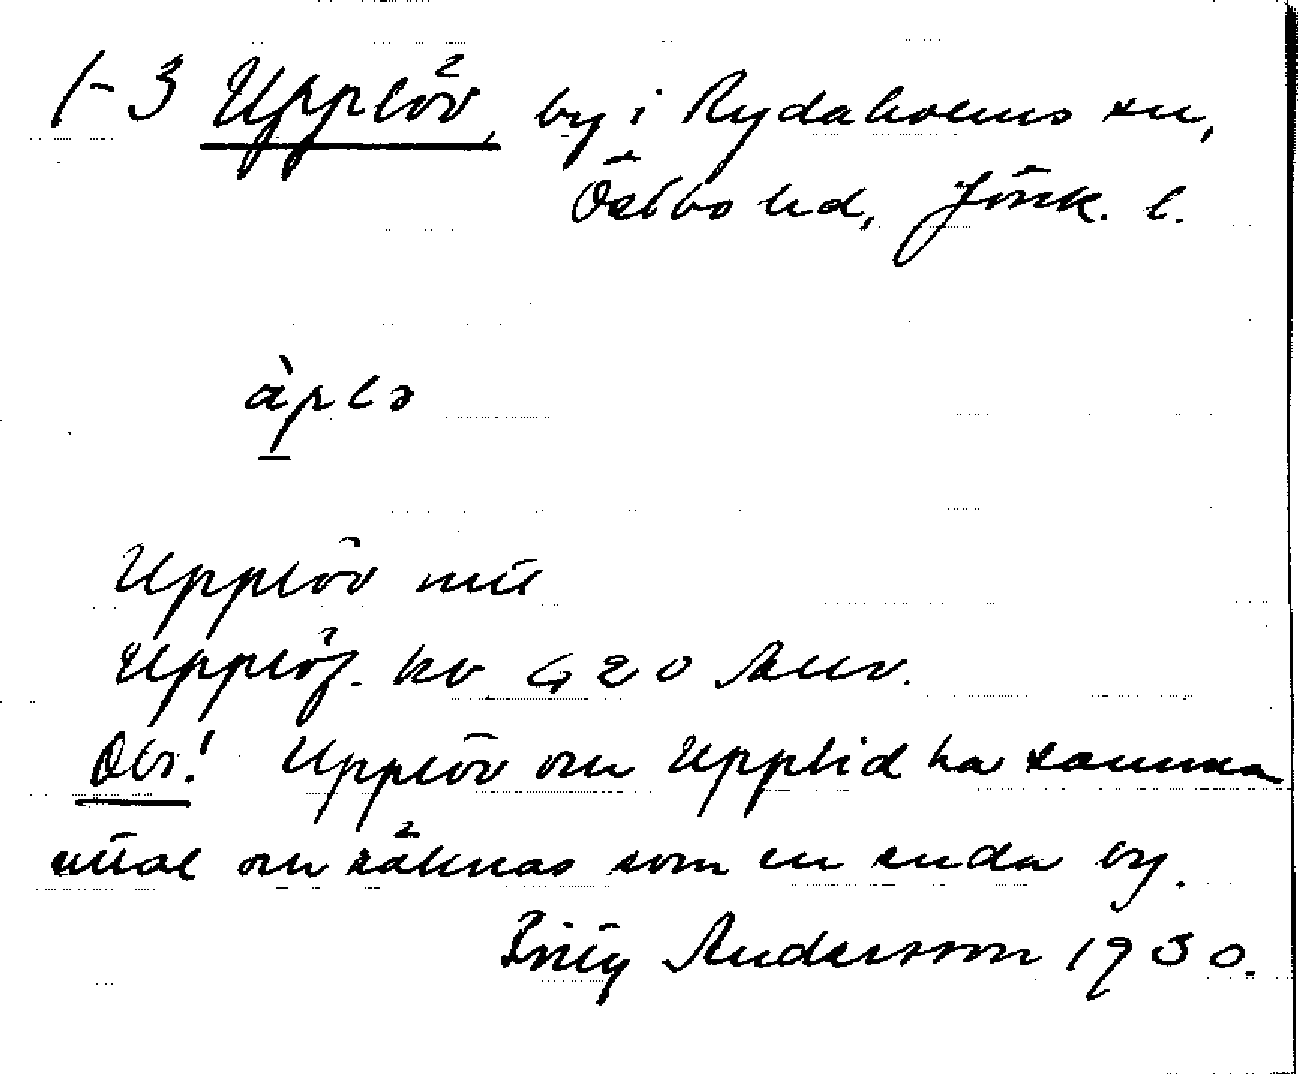 1-3 Upplöv, by i Rydaholms sn,
Östbo hd, Jönk. l.
àplə
Upplöv
Upplöf. kv 420 Anv.
Obs! Upplöv och Upplid ha samma
och räknas som en enda by.
Andersson 1930.